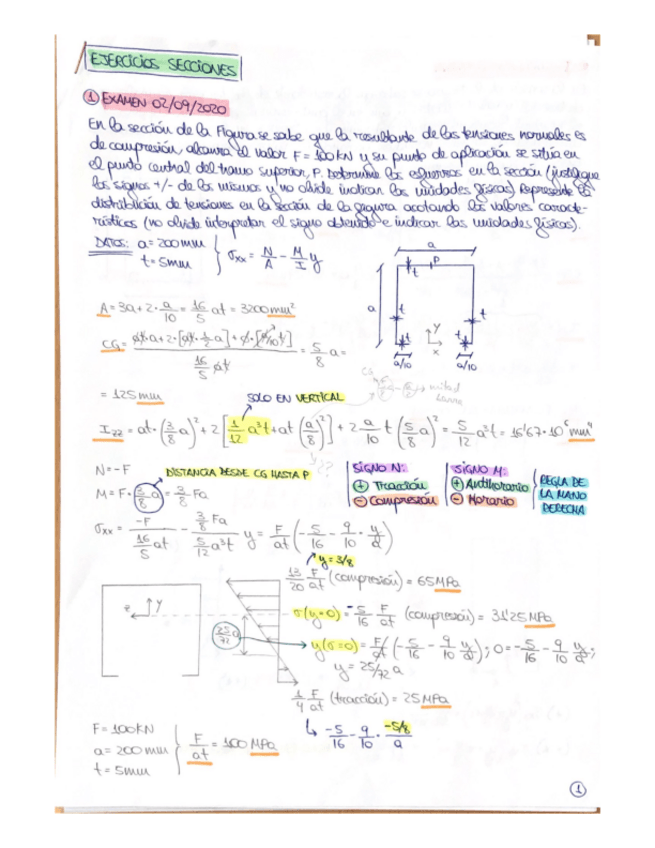 EJERCICIOS SECCIONES
① EXAMEN 02/09/2020
En la sección de la Figura se sabe que la resultante de las tensiones normales es
de compresión, alcanza el valor F = 100 kN y su punto de aplicación se sitúa en
el punto central del tramo superior, P. Determine los esfuerzos en la sección (justifique
los signos +/- de los mismos y no olvide indicar las unidades físicas). Represente la
distribución de tensiones en la sección de la figura acotando los valores caracte-
rísticos (no olvide interpretar el signo obtenido e indicar las unidades físicas).
DATOS: a = 200 mm
t = 5 mm
σxx = N/A - M/I y
a
P
t
a
t
t
t
t
y
x
a/10
a/10
A = 3a + 2 · a/10 = 16/5 at = 3200 mm²
CG = (at·a + 2·[at·1/2 a] + 0·[a/10 t]) / (16/5 at) = 5/8 a =
= 125 mm
CG
mitad
SOLO EN VERTICAL
Izz = at·(3/8 a)² + 2[1/12 a³t + at(a/8)²] + 2 a/10 t (5/8 a)² = 5/12 a³t = 16'67·10⁶ mm⁴
N = -F
DISTANCIA DESDE CG HASTA P
M = F·(3/8 a) = 3/8 Fa
SIGNO N:
⊕ Tracción
⊖ Compresión
SIGNO M:
⊕ Antihorario
⊖ Horario
REGLA DE
LA MANO
DERECHA
σxx = -F/(16/5 at) - (3/8 Fa)/(5/12 a³t) y = F/at (-5/16 - 9/10 · y/a)
y = 3/8
13/20 F/at (compresión) = 65 MPa
z
y
σ(y=0) = -5/16 F/at (compresión) = 31'25 MPa
25/72 a
y(σ=0) = F/at (-5/16 - 9/10 y/a); 0 = -5/16 - 9/10 y/a;
y = 25/72 a
1/4 F/at (tracción) = 25 MPa
-5/16 - 9/10 · -5/8/a
F = 100 KN
a = 200 mm
t = 5 mm
F/at = 100 MPa
①